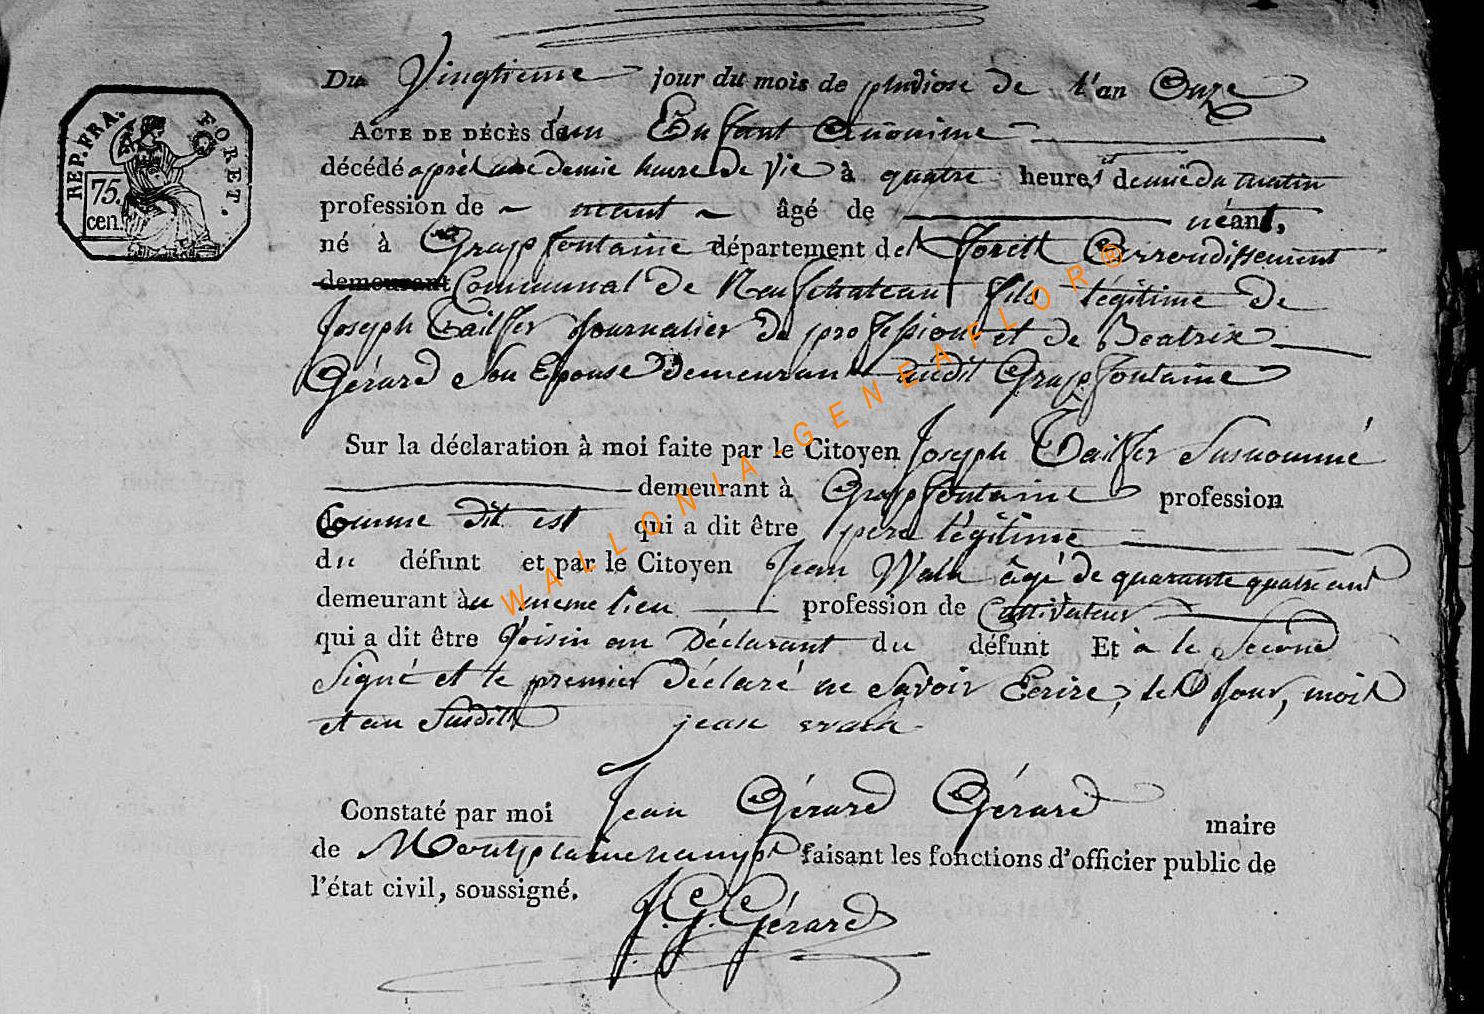 REP. FRA. FORET.
75.
cen.
Du Vingtieme jour du mois de pludiose de l'an Onze
ACTE DE DÉCÈS de un Enfant Anonime
décédé après une demie heure de vie à quatre heures demie du matin
profession de néant âgé de néant,
né à Grapfontaine département de la forett Arrondissement
demeurant Communal de Neufchateau fils légitime de
Joseph Tailfer Journalier de profession et de Beatrix
Gérard Son Epouse Demeurant audit Grapfontaine
Sur la déclaration à moi faite par le Citoyen Joseph Tailfer Susnommé
demeurant à Grapfontaine profession
Comme dit est qui a dit être père légitime
du défunt et par le Citoyen Jean Wala âgé de quarante quatre ans
demeurant au meme lieu profession de Cultivateur
qui a dit être Voisin au Déclarant du défunt Et à le Second
Signé et le premier Déclaré ne Savoir Ecrire, les Jour, mois
et an Susdits jean wala
Constaté par moi Jean Gérard Gérard maire
de Montplainchamps faisant les fonctions d'officier public de
l'état civil, soussigné.
J. G. Gérard
WALLONIA-GENEAFLOR©